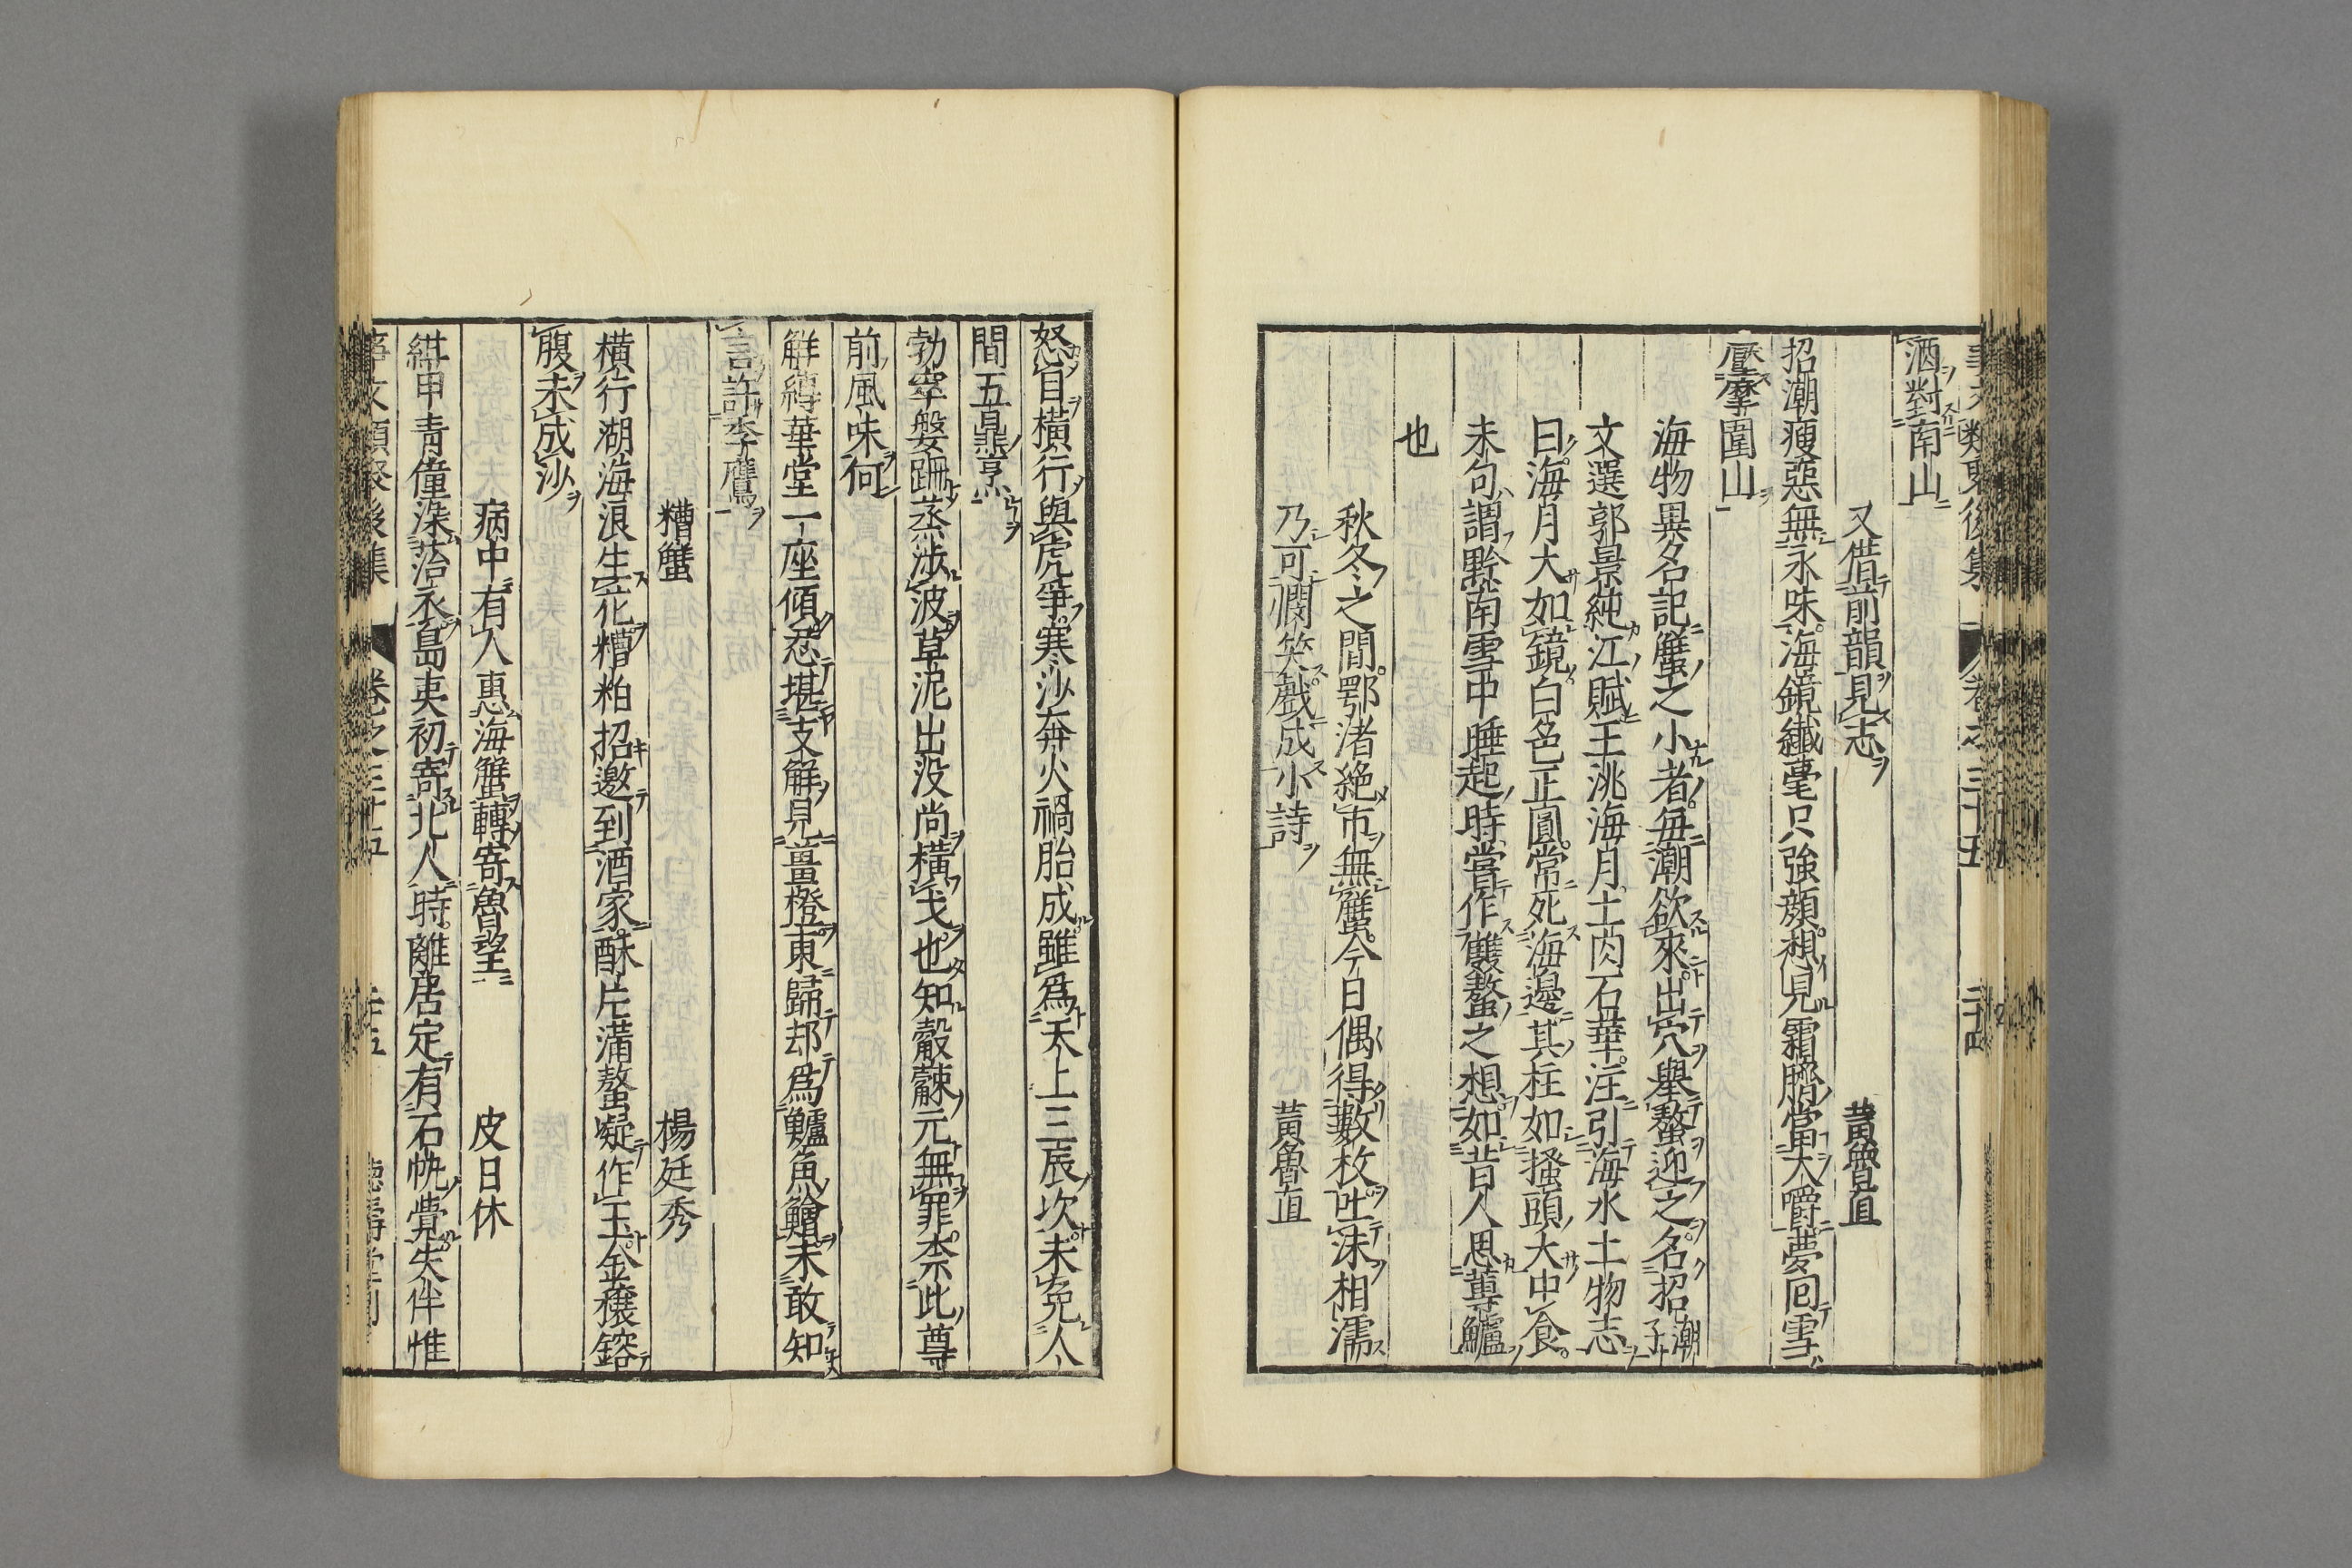 酒對南山
又借前韻見志　黃魯直
招潮瘦惡無永味海鏡纖毫只強顏想見霜臍當大嚼夢回雪
壓摩圍山
海物異名記蟹之小者每潮欲來出穴舉螯迎之名招潮子
文選郭景純江賦王洮海月土肉石華注引海水土物志
曰海月大如鏡白色正圓常死海邊其柱如搔頭大中食
未句謂黔南雪中睡起時嘗作雙螯之想如昔人思蓴鱸
也
秋冬之間鄂渚絕市無蟹今日偶得數枚吐沫相濡
乃可憫笑戲成小詩　黃魯直
怒目橫行與虎爭寒沙奔火禍胎成雖為天上三辰次未免人
間五鼎烹
勃窣媻跚蒸涉波草泥出沒尚橫戈也知觳觫元無罪柰此尊
前風味何
解縛華堂一座傾忍堪支解見薑橙東歸却為鱸魚鱠未敢知
言許季鷹
糟蟹　楊廷秀
橫行湖海浪生花糟粕招邀到酒家酥片滿螯凝作玉金穰鎔
腹未成沙
病中有人惠海蟹轉寄魯望　皮日休
紺甲青僮染菭衣島夷初寄北人時離居定有石帆覺失伴惟
事文類聚後集　卷之三十五　二十五